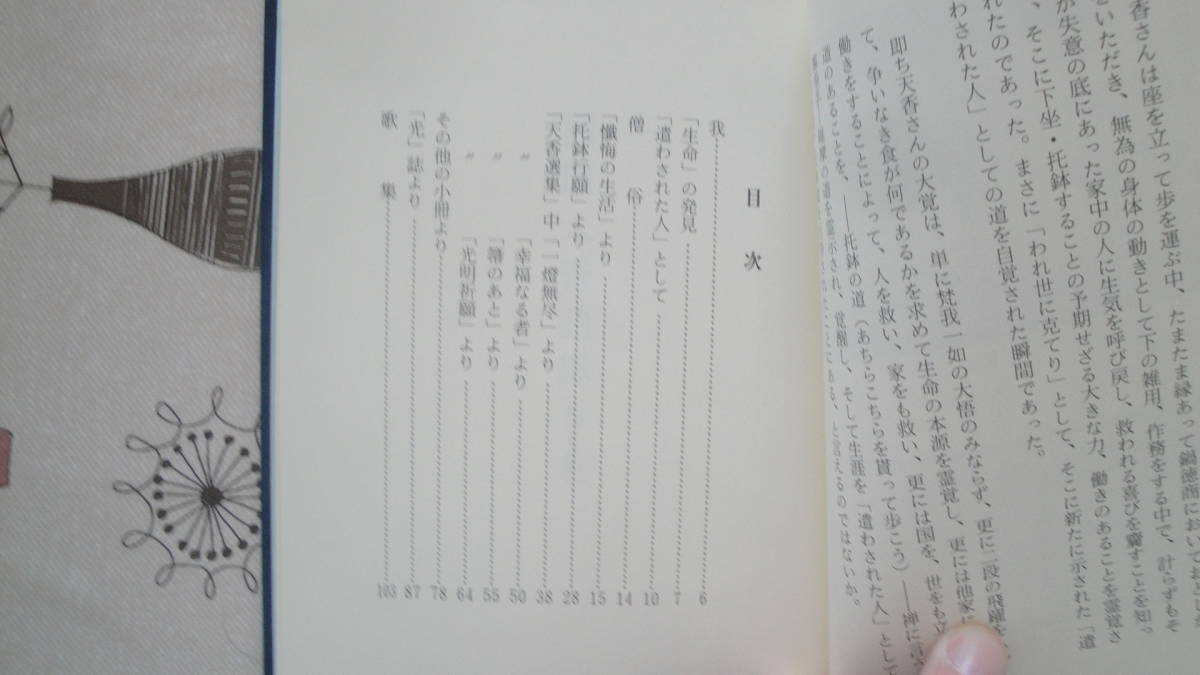 香さんは座を立って歩を運ぶ中、たまたま縁あって鍋徳商において
いただき、無為の身体の動きとして下の雑用、作務をする中で、計らずもそ
が失意の底にあった家中の人に生気を呼び戻し、救われる喜びを齎すことを知っ
、そこに下坐・托鉢することの予期せざる大きな力、働きのあることを霊覚さ
れたのであった。まさに「われ世に克てり」として、そこに新たに示された「遣
わされた人」としての道を自覚された瞬間であった。
即ち天香さんの大覚は、単に梵我一如の大悟のみならず、更に二段の飛躍を
て、争いなき食が何であるかを求めて生命の本源を霊覚し、更には他家
働きをすることによって、人を救い、家をも救い、更には国を、世をも立
道のあることを、――托鉢の道(あちらこちらを貰って歩こう)――禅に
示され、覚醒し、そして生涯を「遣わされた人」として
である、と言えるのではないか。
目次
我 6
「生命」の発見 7
「遣わされた人」として 10
僧俗 14
「懺悔の生活」より 15
「托鉢行願」より 28
「天香選集」中「一燈無尽」より 38
〃「幸福なる者」より 50
〃「箒のあと」より 55
「光明祈願」より 64
その他の小冊より 78
「光」誌より 87
歌集 103